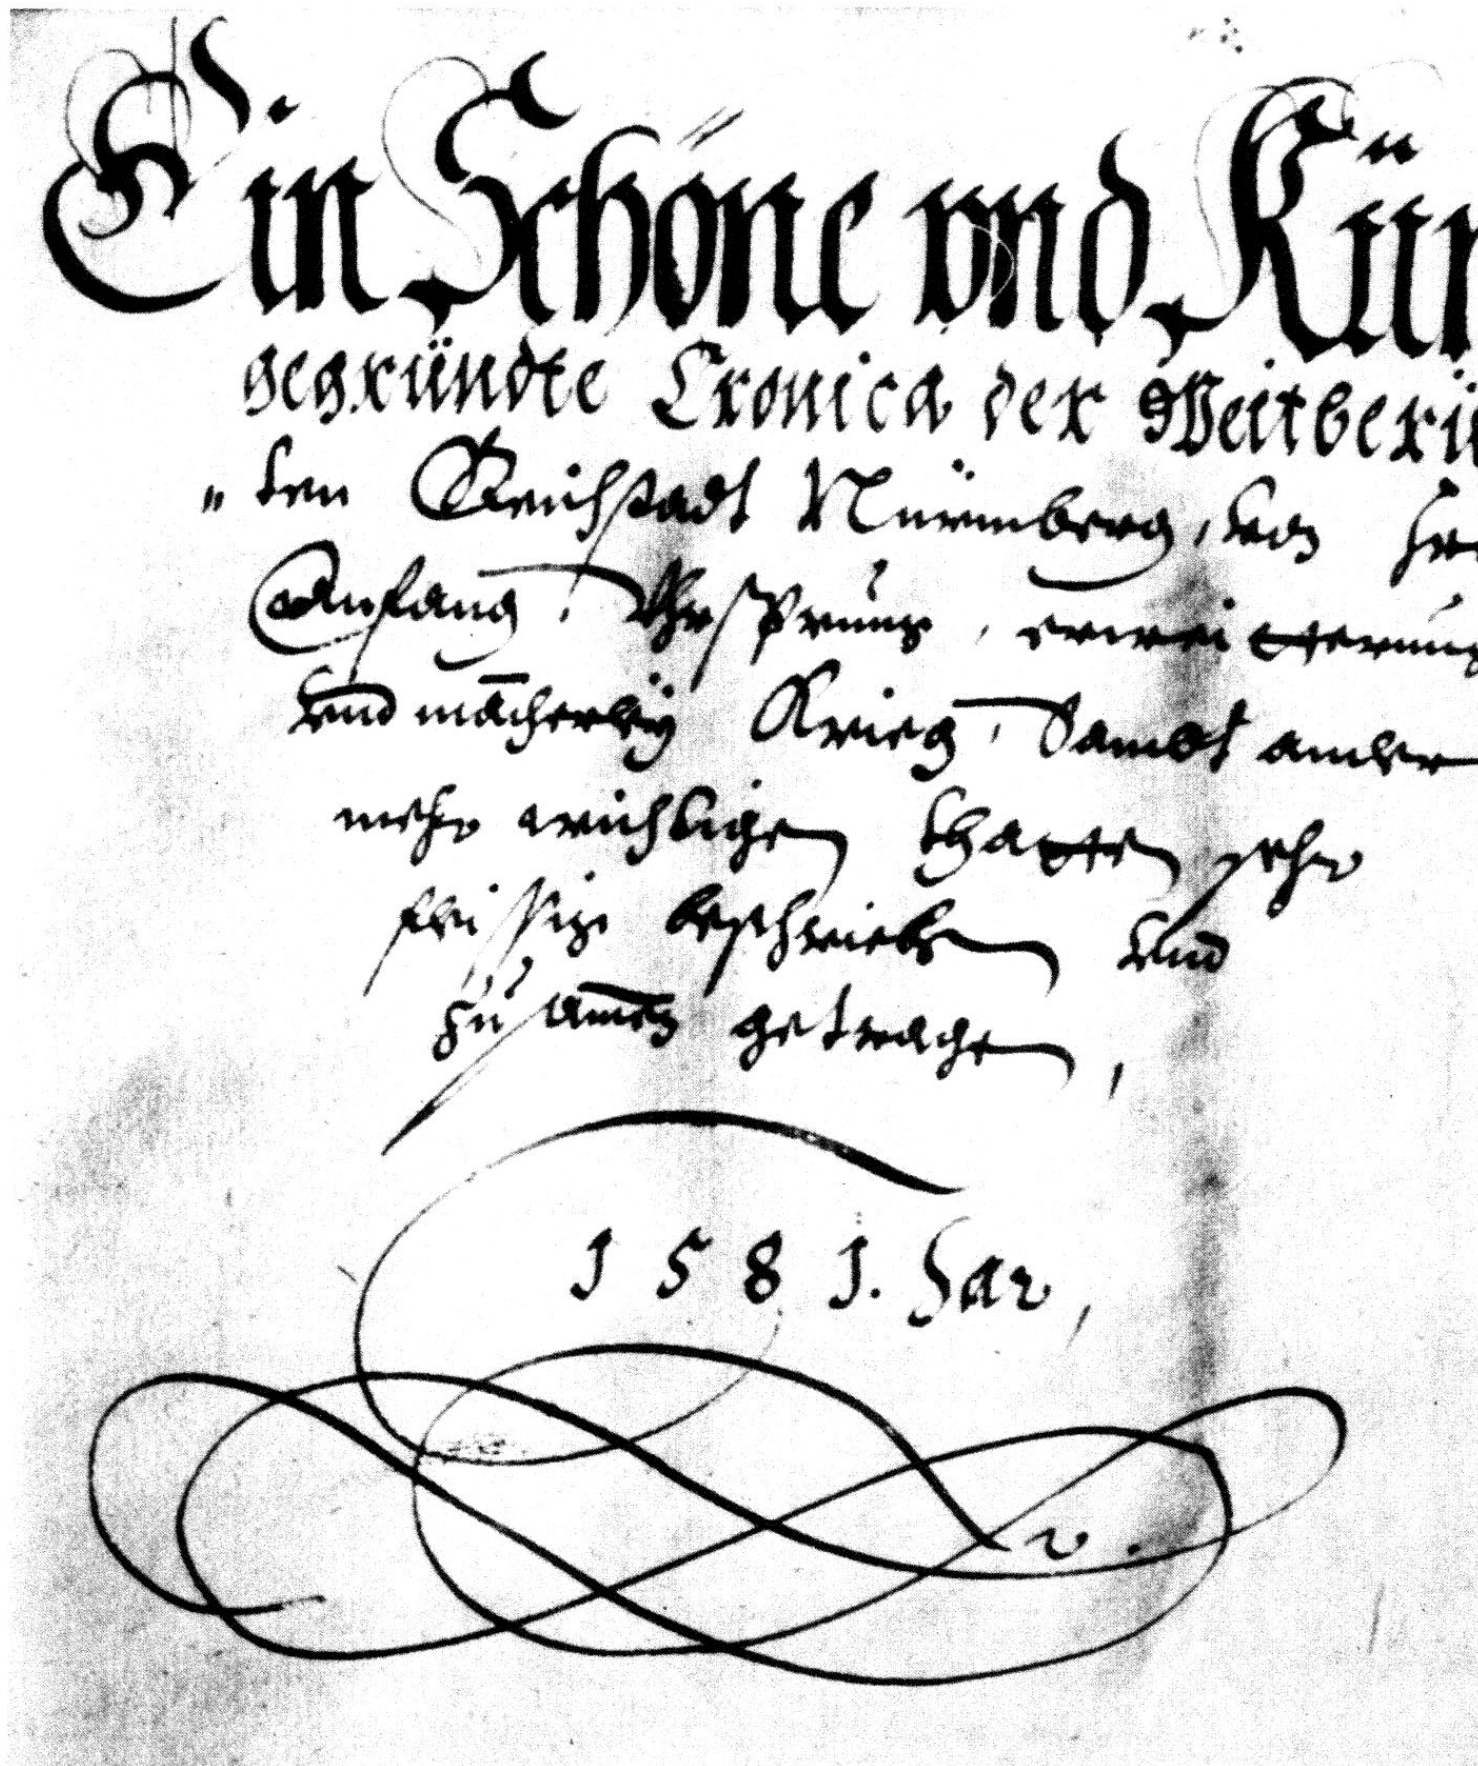 Ein Schöne vnd Kün
gegründte Cronica der Weitberü
„ ten Reichstadt Nürmberg, von Ihr
Anfang, Vhrsprung, erweitterung
vnd mācherley Krieg, Sambt ander
mehr wichtigen thatten sehr
fleissig beschrieben vnd
zusamen getragen,
1581. Jar,